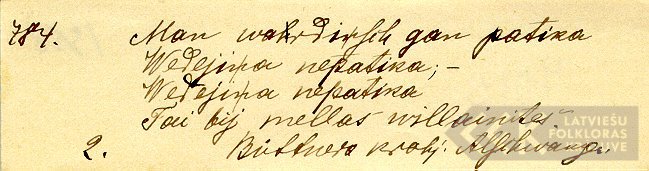 784. Man wahrdiņsch gan patika
Wedejiņa nepatika; –
Wedejiņa nepatika
Tai bij mellas willainites.
2. Büttners krahj.
LATVIEŠU
FOLKLORAS